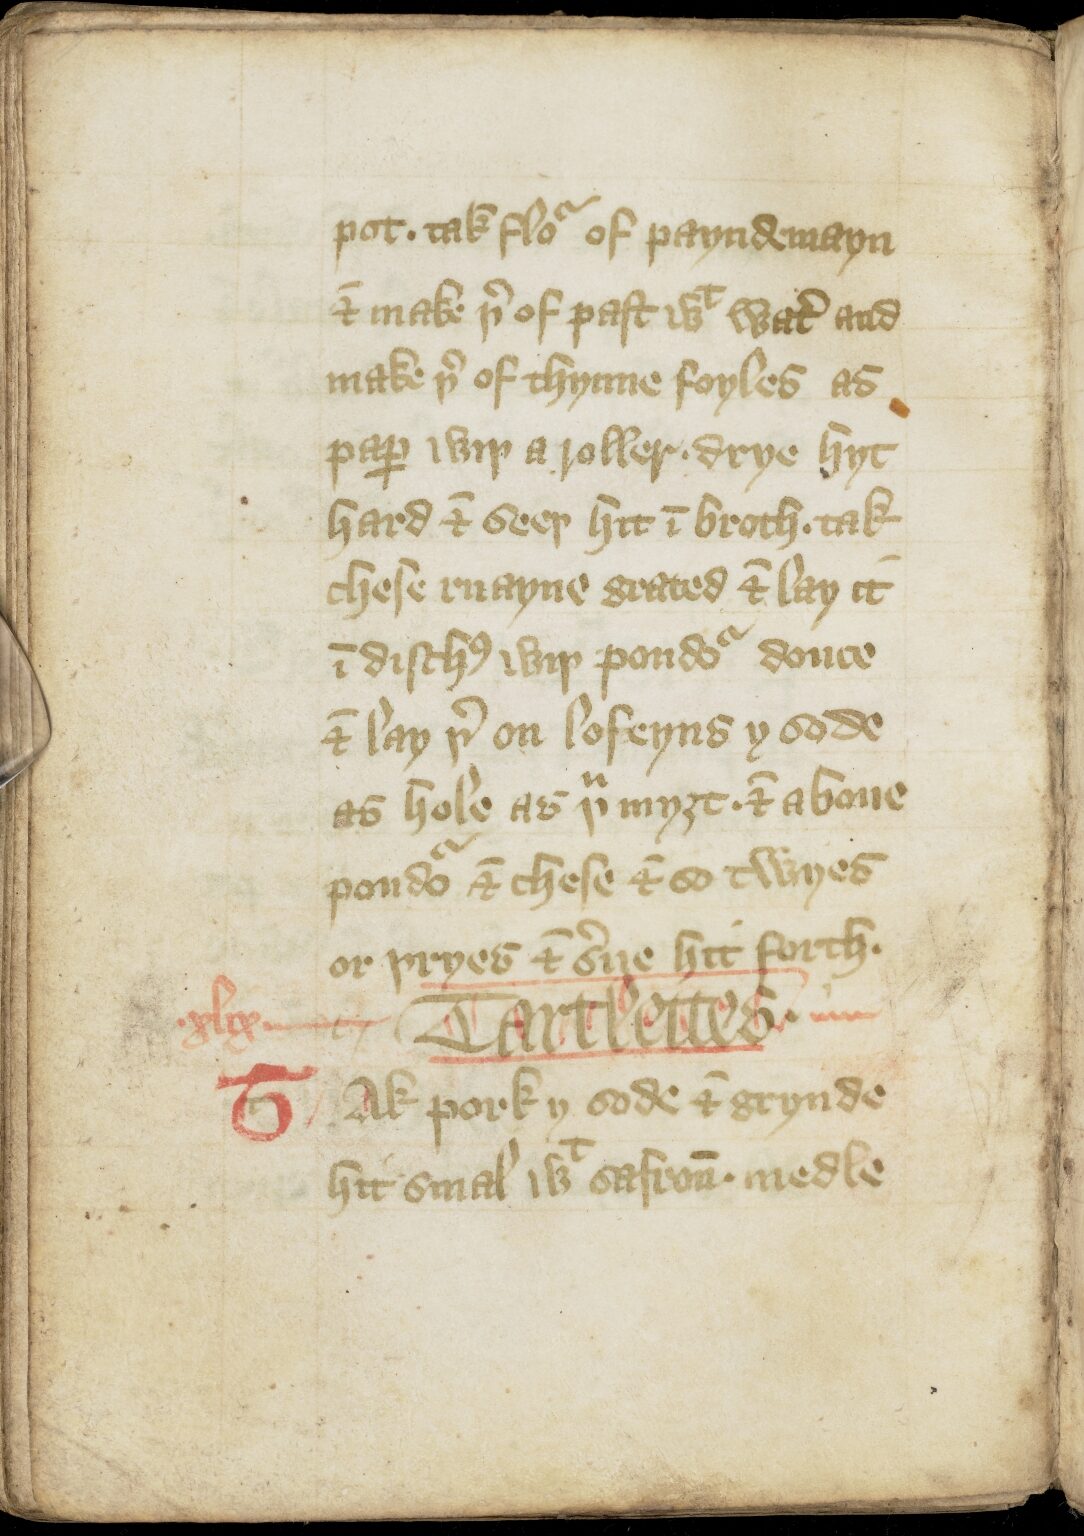 pot. tak floᵃ of payndemayn
⁊ make þ̉ of past wᵗ wat̉ and
make þ̉ of thynne foyles as
paꝑ wiþ a roller. drye hyt
hard ⁊ seeþ hit ī broth. tak
chese ruayne grated ⁊ lay it
ī dischꝰ wiþ poudoᵃ douce
⁊ lay þ̉ on loseyns y sode
as hole as þᵘ myȝt. ⁊ aboue
poudoᵃ ⁊ chese ⁊ so twyes
or þryes ⁊ s̉ue hit forth.
.xlix. Tartlettes.
T Ak pork y sode ⁊ grynde
hit smal wᵗ safroū. medle